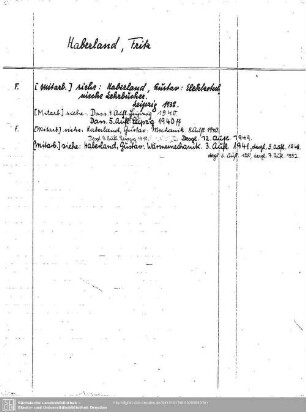 Haberland, Fritz
F. [Mitarb.] siehe: Haberland, Gustav: Elektrotech-
nische Lehrbücher.
Leipzig 1938.
[Mitarb] siehe: Dass. 4. Aufl. Leipzig 1940.
Dass. 5. Aufl. Leipzig 1940 ff
F. [Mitarb] siehe: Haberland, Gustav: Mechanik. 8. Aufl. 1940,
Dergl. 12. Aufl. 1949.
[Mitarb.] siehe: Haberland, Gustav: Wärmemechanik. 3. Aufl. 1941, dergl. 5. Aufl. 1948,
dergl. 6. Aufl. 1951, dergl. 7. Aufl. 1952.
Sächsische Landesbibliothek -
Staats- und Universitätsbibliothek Dresden